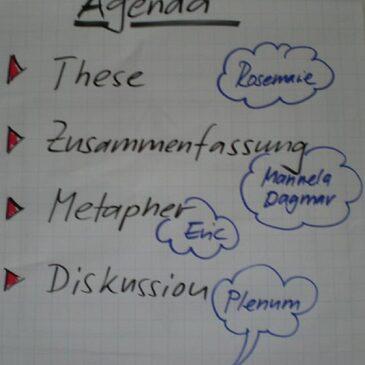 Agenda
These
Rosemarie
Zusammenfassung
Manuela
Dagmar
Metapher
Eric
Diskussion
Plenum